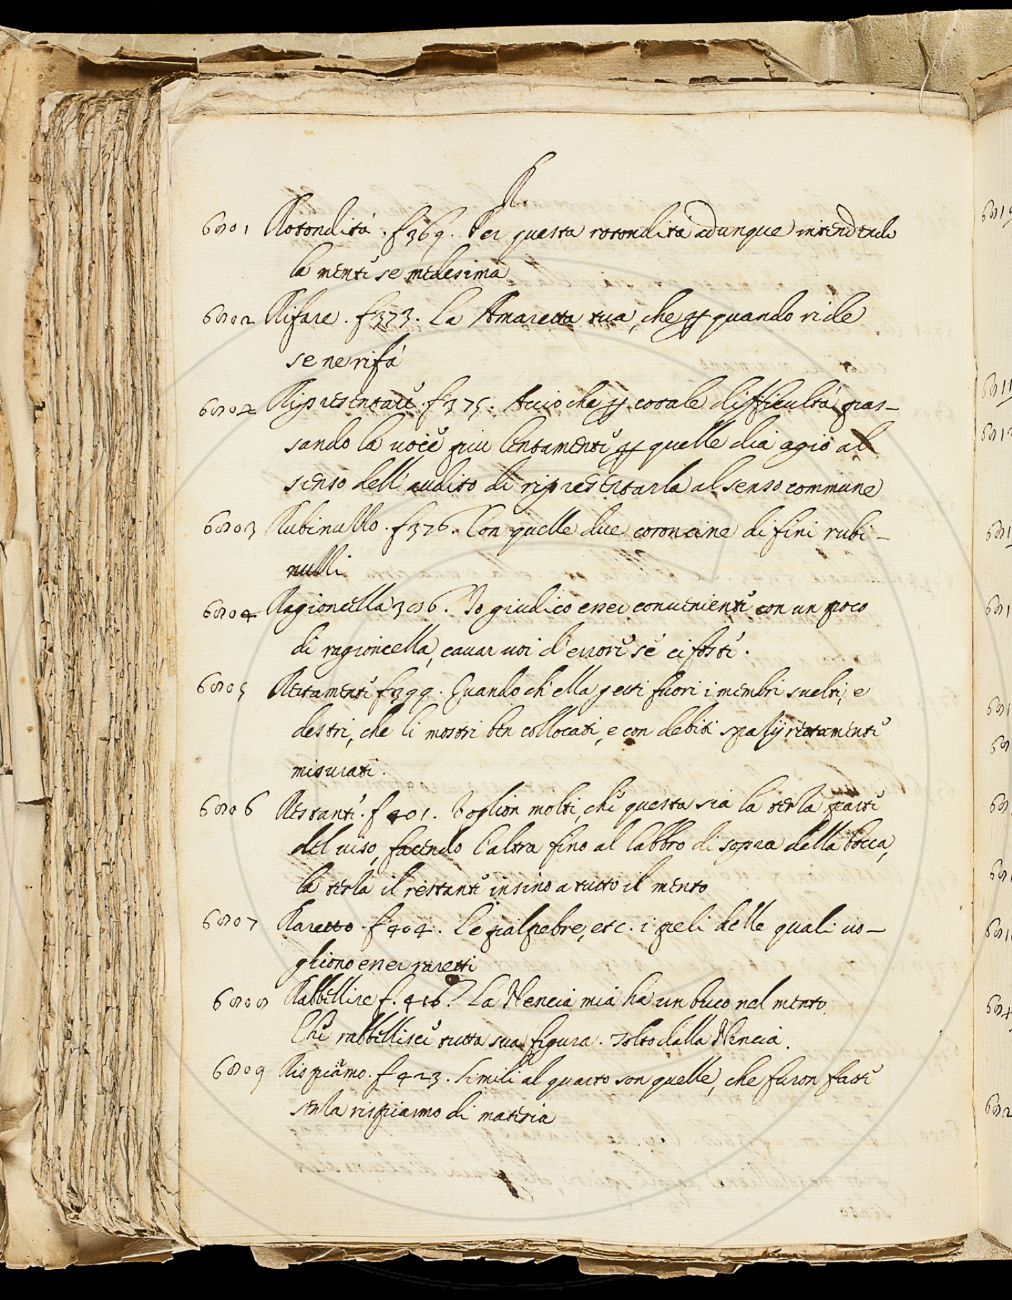 R
6801 Rotondità. f 369. Per questa rotondità adunque intendendo
la mente se medesima
6802 Rifare. f 373. La Amaretta tua, che quando ride
se ne rifà
6802 Ripresentare. f 375. Acciò che p cotale difficultà pas-
sando la voce piu lentamente p quelle dia agio al
senso dell'audito di ripresentarla al senso commune
6803 Rubinuzzo. f 376. Con quelle due coroncine di fini rubi-
nuzzi
6804 Ragioncella 386. Io giudico esser conveniente con un poco
di ragioncella, cavar voi d'errore se ci foste.
6805 Rettamente f 399. Quando ch'ella getti fuori i membri svelti, e
destri, che li mostri ben collocati, e con debiti spazij rettamente
misurati.
6806 Restante. f 401. Voglion molti, che questa sia la terza parte
del viso, facendo l'altra fino al labbro di sopra della bocca,
la terza il restante insino a tutto il mento
6807 Raretto. f 404. Le palpebre, etc. i peli delle quali vo-
gliono esser raretti
6808 Rabbellire f. 416. La Nencia mia ha un buco nel mento
Che rabbellisce tutta sua figura. Tolto dalla Nencia.
6809 Rispiarmo. f 423. Simili al quarto son quelle, che furon fatte
senza rispiarmo di materia